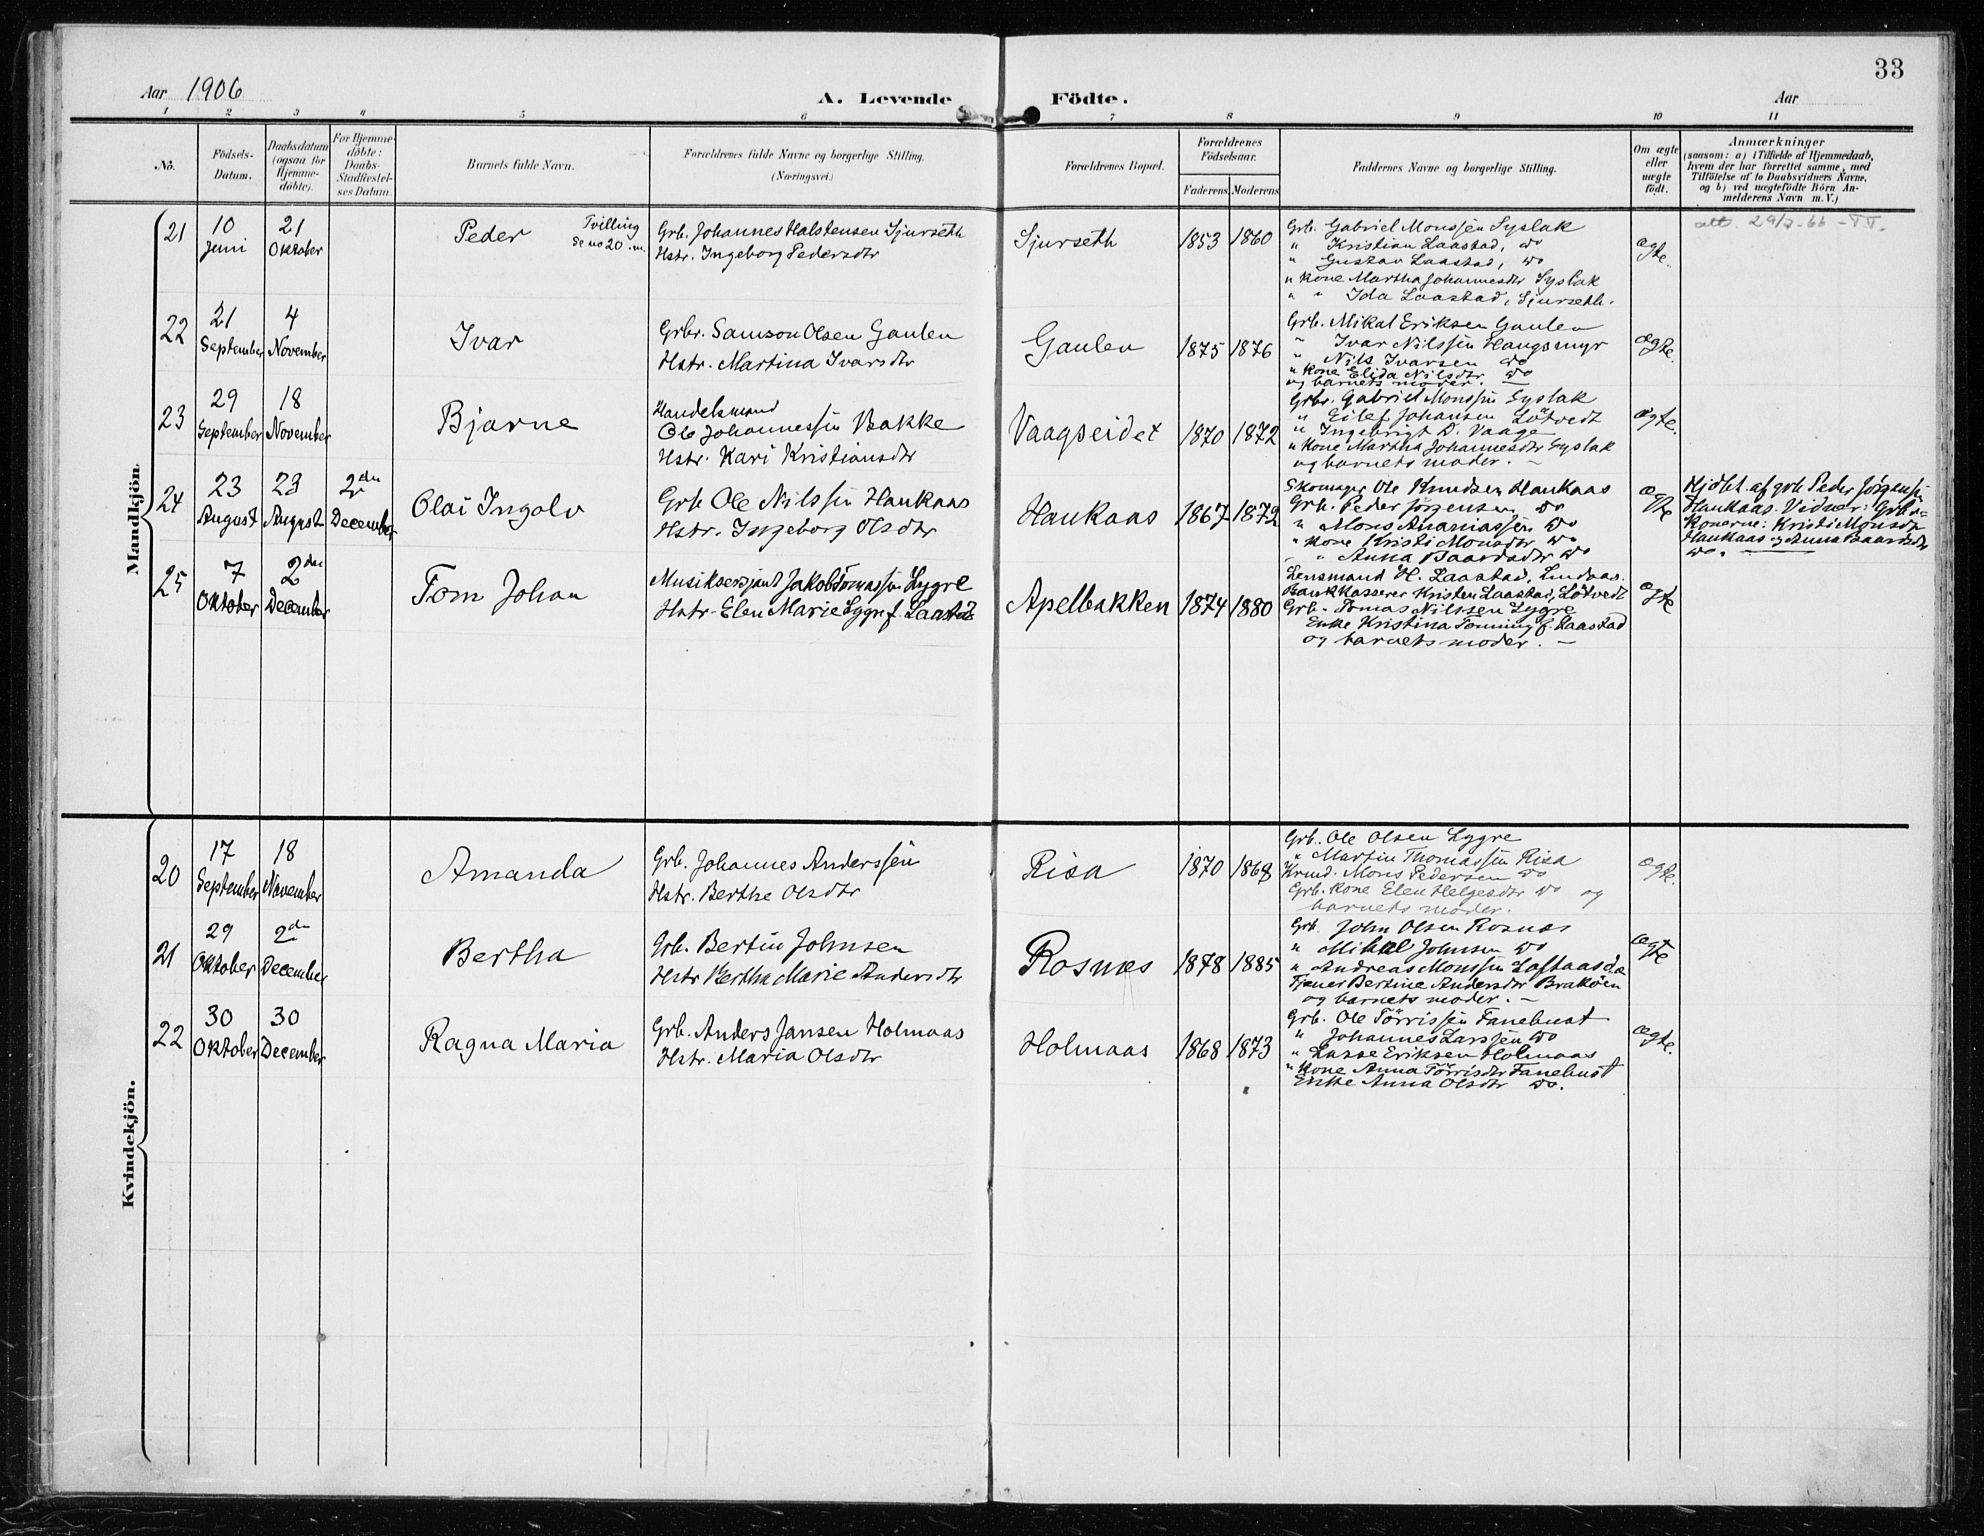 33
Aar 1906
A. Levende Födte.
Aar
1 2 3 4 5 6 7 8 9 10 11
No.
Födsels-
Datum.
Daabsdatum
(ogsaa for
Hjemme-
döbte).
For Hjemme-
döbte:
Daabs-
Stadfæstel-
ses Datum.
Barnets fulde Navn.
Forældrenes fulde Navne og borgerlige Stilling.
(Næringsvei.)
Forældrenes Bopæl.
Forældrenes
Födselsaar.
Faderens. Moderens.
Faddernes Navne og borgerlige Stilling.
Om ægte
eller
uægte
født.
Anmærkninger
(saasom: a) i Tilfælde af Hjemmedaab,
hvem der har forrettet samme, med
Tilföielse af to Daabsvidners Navne,
og b) ved uægtefödte Börn An-
melderens Navn m. V.)
Mandkjön.
21
10
Juni
21
Oktober
Peder
Tvilling
se no 20 m.
Grb. Johannes Halstensen Sjurseth
Hstr. Ingeborg Pedersdtr
Sjurseth
1853 1860
Grb. Gabriel Monssen Syslak
" Kristian Laastad, do
" Gustav Laastad, do
" Kone Martha Johannesdtr Syslak
" " Ida Laastad, Sjurseth.
ægte.
att. 29/7-66 - TT.
22
21
September
4
November
Ivar
Grbr. Samson Olsen Gaulen
Hstr. Martina Ivarsdtr
Gaulen
1875 1876
Grb. Mikal Eriksen Gaulen
" Ivar Nilssen Haugsmyr
" Nils Ivarsen do
" Kone Elida Nilsdtr do
og barnets moder. —
ægte.
23
29
September
18
November
Bjarne
Handelsmand
Ole Johannessen Bakke
Hstr. Kari Kristiansdtr
Vaagseidet
1870 1872
Grbr. Gabriel Monssen Syslak
" Eilef Johansen Lötvedt
" Ingebrigt D. Vaage
" Kone Martha Johannesdtr Syslak
og barnets moder. —
ægte.
24
23
August
23
August
2den
December
Olai Ingolv
Grb Ole Nilssen Haukaas
Hstr. Ingeborg Olsdtr
Haukaas
1867 1872
Skomager Ole Knudsen Haukaas
Grb. Peder Jørgensen do
" Mons Ananiassen do
" Kone Kristi Monsdtr do
" " Anna Baardsdtr do
ægte
Hjdbt. af grb. Peder Jørgensen
Haukaas. Vidner: Grb.-
Konerne: Kristi Monsdtr
Haukaas og Anna Baardsdtr
do. —
25
7
Oktober
2den
December
Tom Johan
Musiksersjant Jakob Tomassen Lygre
Hstr. Elen Marie Lygre f. Laastad
Apelbakken
1874 1880
Lensmand H. Laastad, Lindaas.
Bankkasserer Kristen Laastad, Lötvedt
Grb. Tomas Nilssen Lygre
Enke Kristina Tonning f. Laastad
og barnets moder. —
ægte
Kvindekjön.
20
17
September
18
November
Amanda
Grb. Johannes Anderssen
Hstr. Berthe Olsdtr
Risa
1870 1868
Grb. Ole Olsen Lygre
" Martin Thomassen Risa
Krmd. Mons Pedersen do
Grb. Kone Elen Helgesdtr do og
barnets moder.
ægte.
21
29
Oktober
2den
December
Bertha
Grb. Bertin Johnsen
Hstr Bertha Marie Andersdtr
Rosnæs
1878 1885
Grb. John Olsen Rosnæs
" Mikal Johnsen do
" Andreas Monssen Loftaas do
Tjener Bertine Andersdtr Braköen
og barnets moder. —
ægte
22
30
Oktober
30
December
Ragna Maria
Grb. Anders Jansen Holmaas
Hstr. Maria Olsdtr
Holmaas
1868 1873
Grb. Ole Törrissen Fanebust
" Johannes Larssen do
" Lasse Eriksen Holmaas
" Kone Anna Törrisdtr Fanebust
Enke Anna Olsdtr do.
ægte.